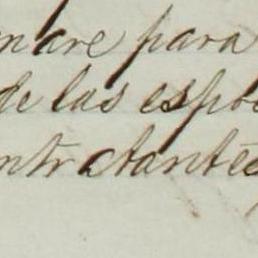 nare para
de las espo
ntratantes